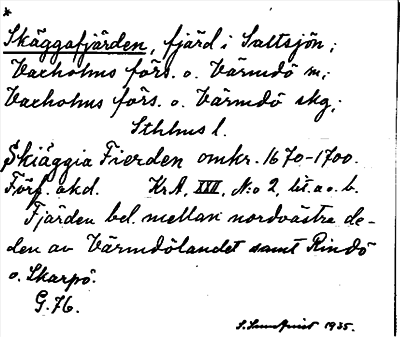 *
Skäggafjärden, fjärd i Saltsjön;
Vaxholms förs. o. Värmdö m;
Vaxholms förs. o. Värmdö skg;
Sthlms l.
Skiäggia Fierden omkr. 1670-1700.
Förf. okd. Kr.A, XXX, N:o 2, lit. a o. b.
Fjärden bel. mellan nordvästra de-
len av Värmdölandet samt Rindö
o. Skarpö.
G. 76.
S. Sundquist 1935.